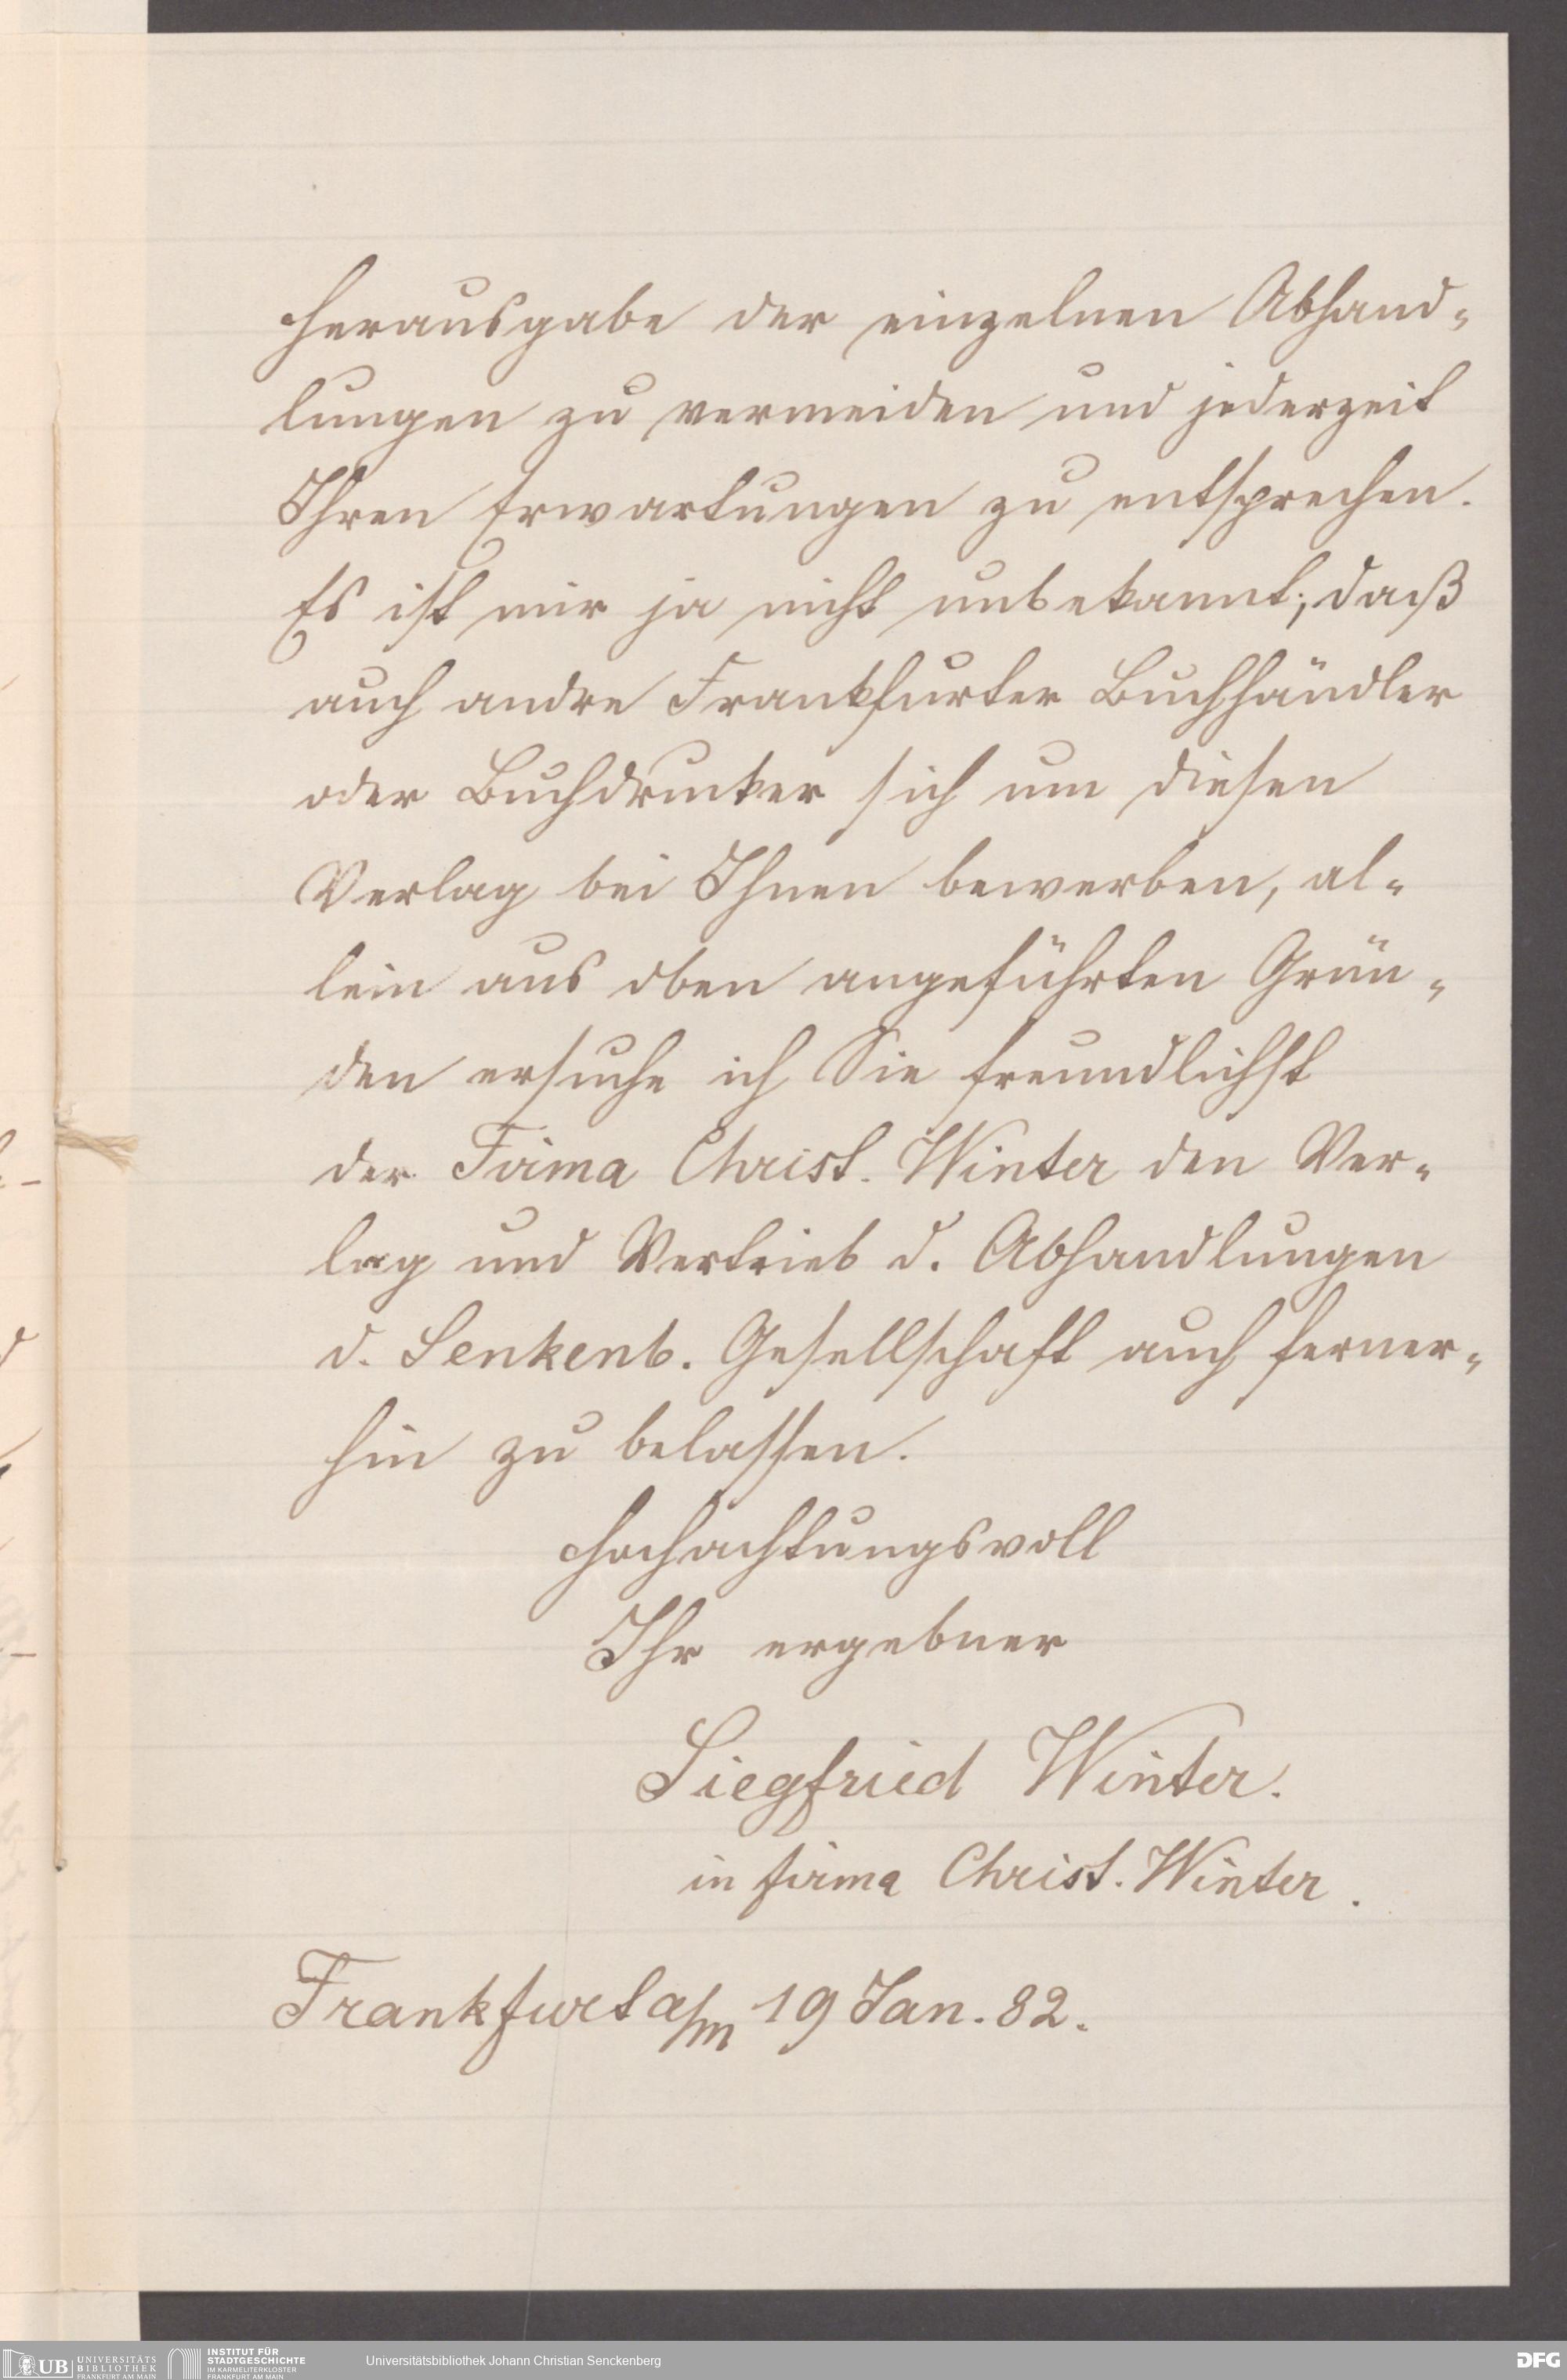 Herausgabe der einzelnen Abhand-
lungen zu vermeiden und jederzeit
Ihren Erwartungen zu entsprechen.
Es ist mir ja nicht unbekannt, daß
auch andre Frankfurter Buchhändler
oder Buchdrucker sich um diesen
Verlag bei Ihnen bewerben, al-
lein aus oben angeführten Grün-
den ersuche ich Sie freundlichst
der Firma Christ. Winter den Ver-
lag und Vertrieb d. Abhandlungen
d. Senkenb. Gesellschaft auch ferner-
hin zu belassen.
Hochachtungsvoll
Ihr ergebner
Siegfried Winter.
in firma Christ. Winter.
Frankfurt a/m 19 Jan. 82.
UB UNIVERSITÄTS
BIBLIOTHEK
FRANKFURT AM MAIN
INSTITUT FÜR
STADTGESCHICHTE
IM KARMELITERKLOSTER
FRANKFURT AM MAIN
Universitätsbibliothek Johann Christian Senckenberg
DFG